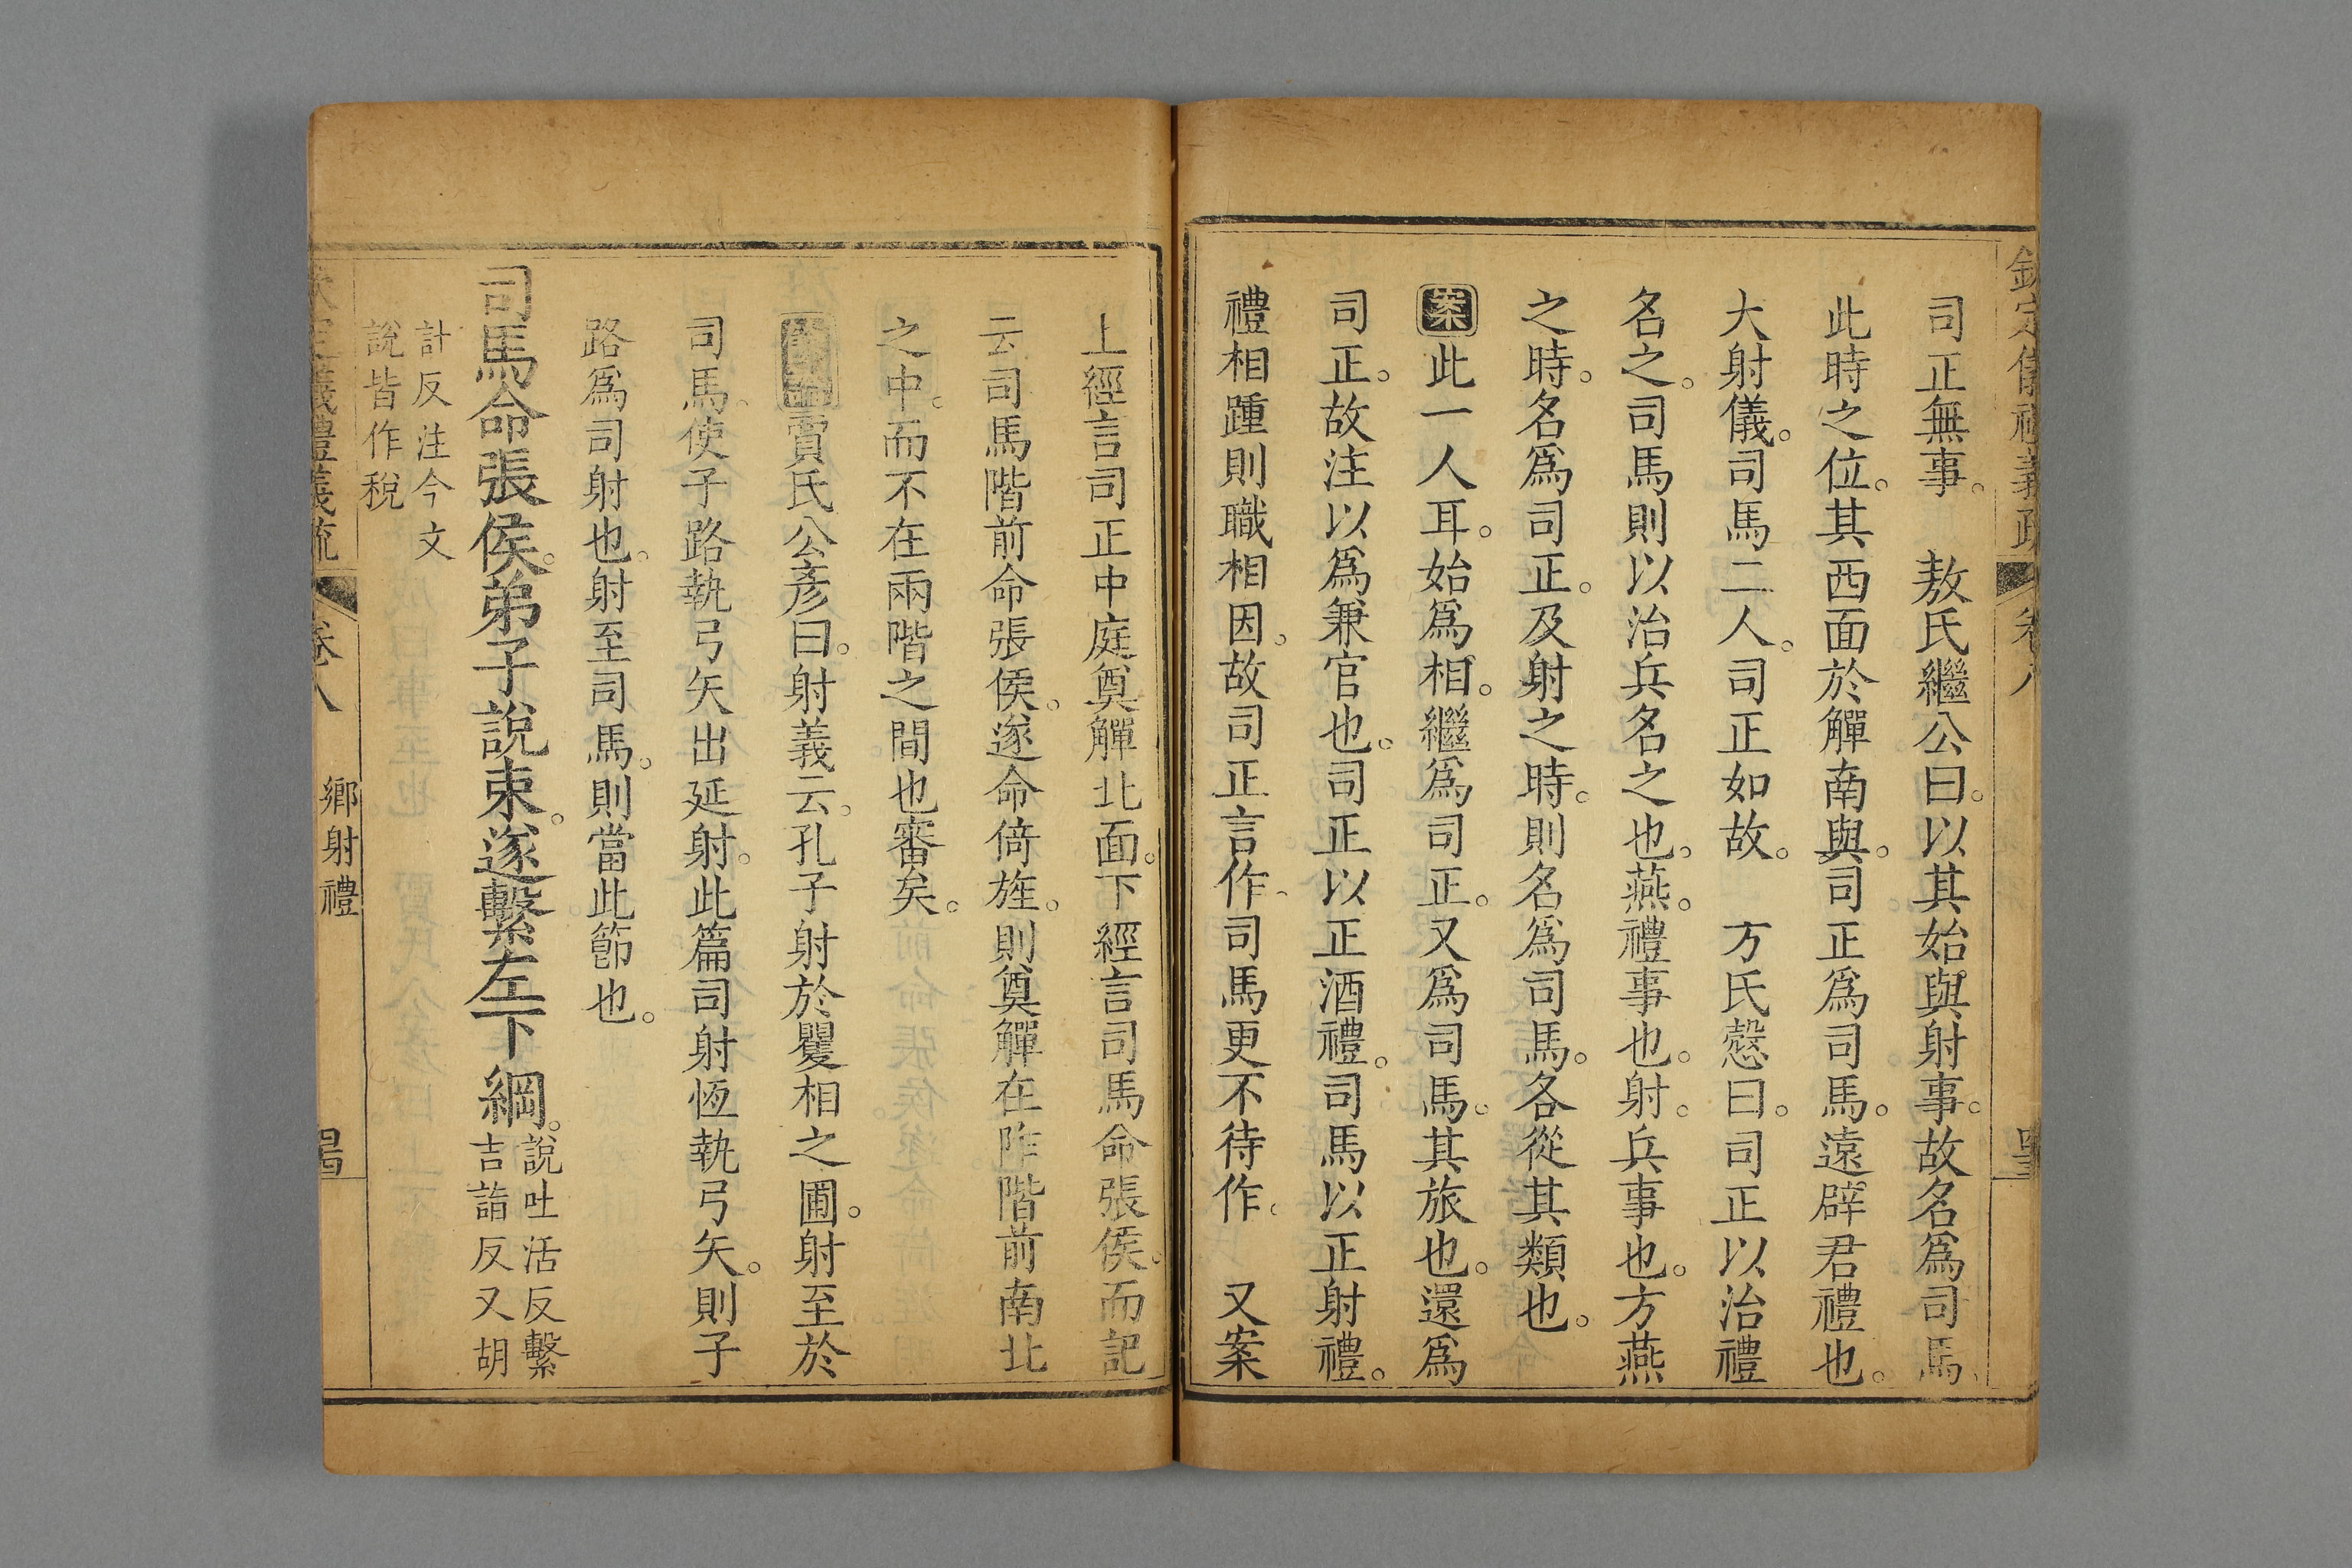 欽定儀禮義疏 卷八
司正無事。　敖氏繼公曰。以其始與射事。故名爲司馬、
此時之位。其西面於觶南與。司正爲司馬。遠辟君禮也。
大射儀。司馬二人。司正如故。　方氏慤曰。司正以治禮
名之。司馬則以治兵名之也。燕。禮事也。射。兵事也。方燕
之時。名爲司正。及射之時。則名爲司馬。各從其類也。
案此一人耳。始爲相。繼爲司正。又爲司馬。其旅也。還爲
司正。故注以爲兼官也。司正以正酒禮。司馬以正射禮。
禮相踵則職相因。故司正言作、司馬更不待作。　又案
上經言司正中庭奠觶北面。下經言司馬命張侯。而記
云司馬階前命張侯。遂命倚旌。則奠觶在阼階前南北
之中。而不在兩階之間也審矣。
餘論賈氏公彥曰。射義云。孔子射於矍相之圃。射至於
司馬。使子路執弓矢出延射。此篇司射恆執弓矢。則子
路爲司射也。射至司馬。則當此節也。
司馬命張侯。弟子說束。遂繫左下綱。說吐活反繫
吉詣反又胡
計反注今文
說皆作稅
欽定儀禮義疏 卷八 鄉射禮